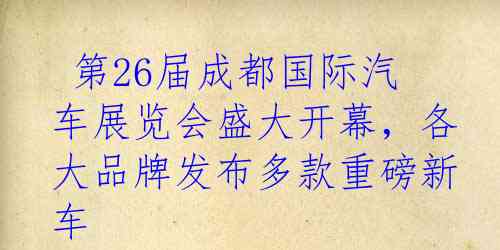 第26届成都国际汽
车展览会盛大开幕，各
大品牌发布多款重磅新
车